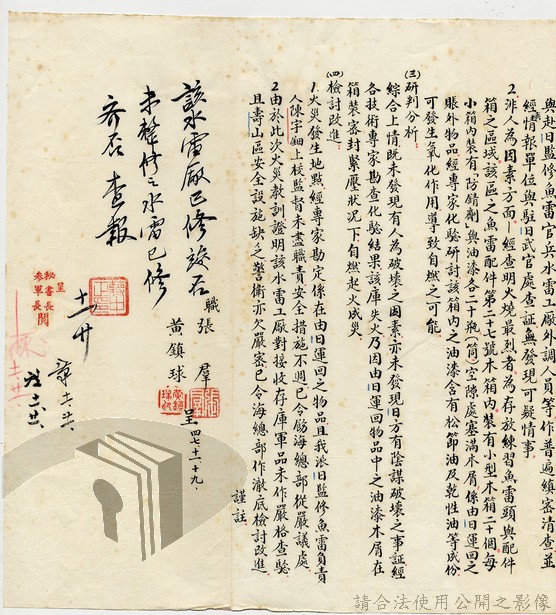 與赴日監修魚雷官兵水雷工廠外調人員等作普遍縝密清查並
經情報單位與駐日武官處查証無發現可疑情事
2.非人為因素方面：經查明火燒最烈者為存放練習魚雷頭與配件
箱之區域該區之魚雷配件第二十七號木箱內裝有小型木箱二十個每
小箱內裝有「防銹劑」與油漆各二十瓶(筒)空隙處塞滿木屑係由日運回之
賬外物品經專家化驗研討該箱內之油漆含有松節油及乾性油等成份
可發生氧化作用導致自燃之可能
(三)研判分析
綜合上情既未發現有人為破壞之因素亦未發現日方有陰謀破壞之事証經
各技術專家勘查化驗結果該庫失火乃因由日運回物品中之油漆木屑在
箱裝密封緊壓狀況下自燃起火成災
(四)檢討改進
1.火災發生地點經專家勘定係在由日運回之物品且我派日監修魚雷負責
人陳宇鈿上校監督未盡職責安全措施不週已令飭海總部從嚴議處
2.由於此次火災教訓証明該水雷工廠對接收存庫軍品未作嚴格查驗
且壽山區安全設施缺乏警衛亦欠嚴密已令海總部作澈底檢討改進
謹註
職張羣
黃鎮球
呈四七、十一、十九、
該水雷廠已修設否
未聲修之水雷已修
齊否 查報
十一廿
呈
秘書長
參軍長
閱
請合法使用公開之影像